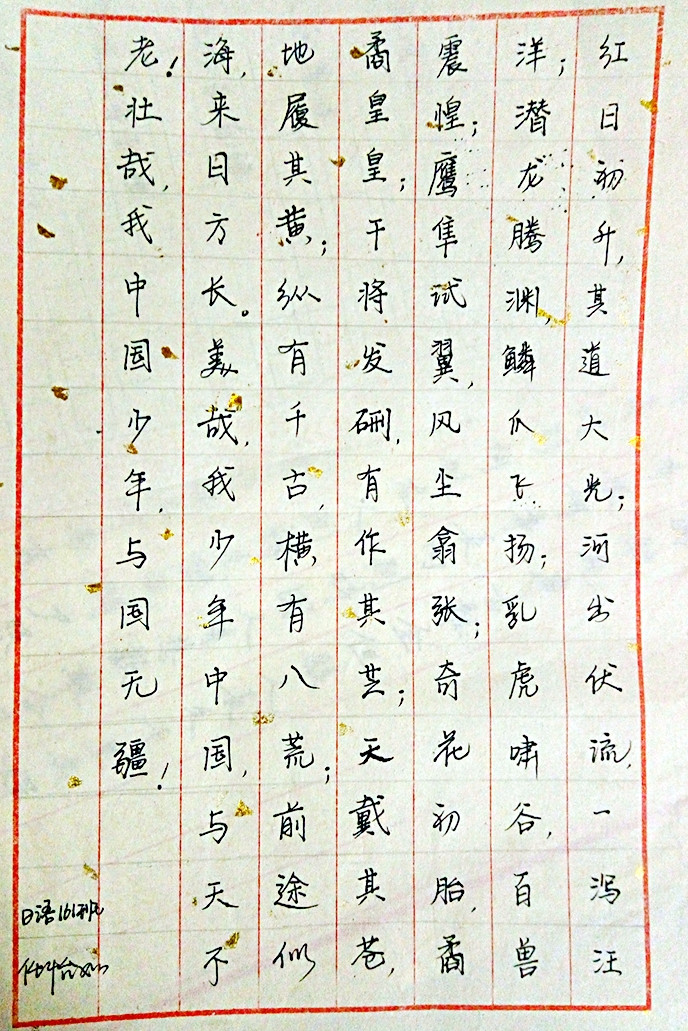 红日初升，其道大光；河出伏流，一泻汪
洋；潜龙腾渊，鳞爪飞扬；乳虎啸谷，百兽
震惶；鹰隼试翼，风尘翕张；奇花初胎，矞
矞皇皇；干将发硎，有作其芒；天戴其苍，
地履其黄；纵有千古，横有八荒；前途似
海，来日方长。美哉，我少年中国，与天不
老！壮哉，我中国少年，与国无疆！
日语161班